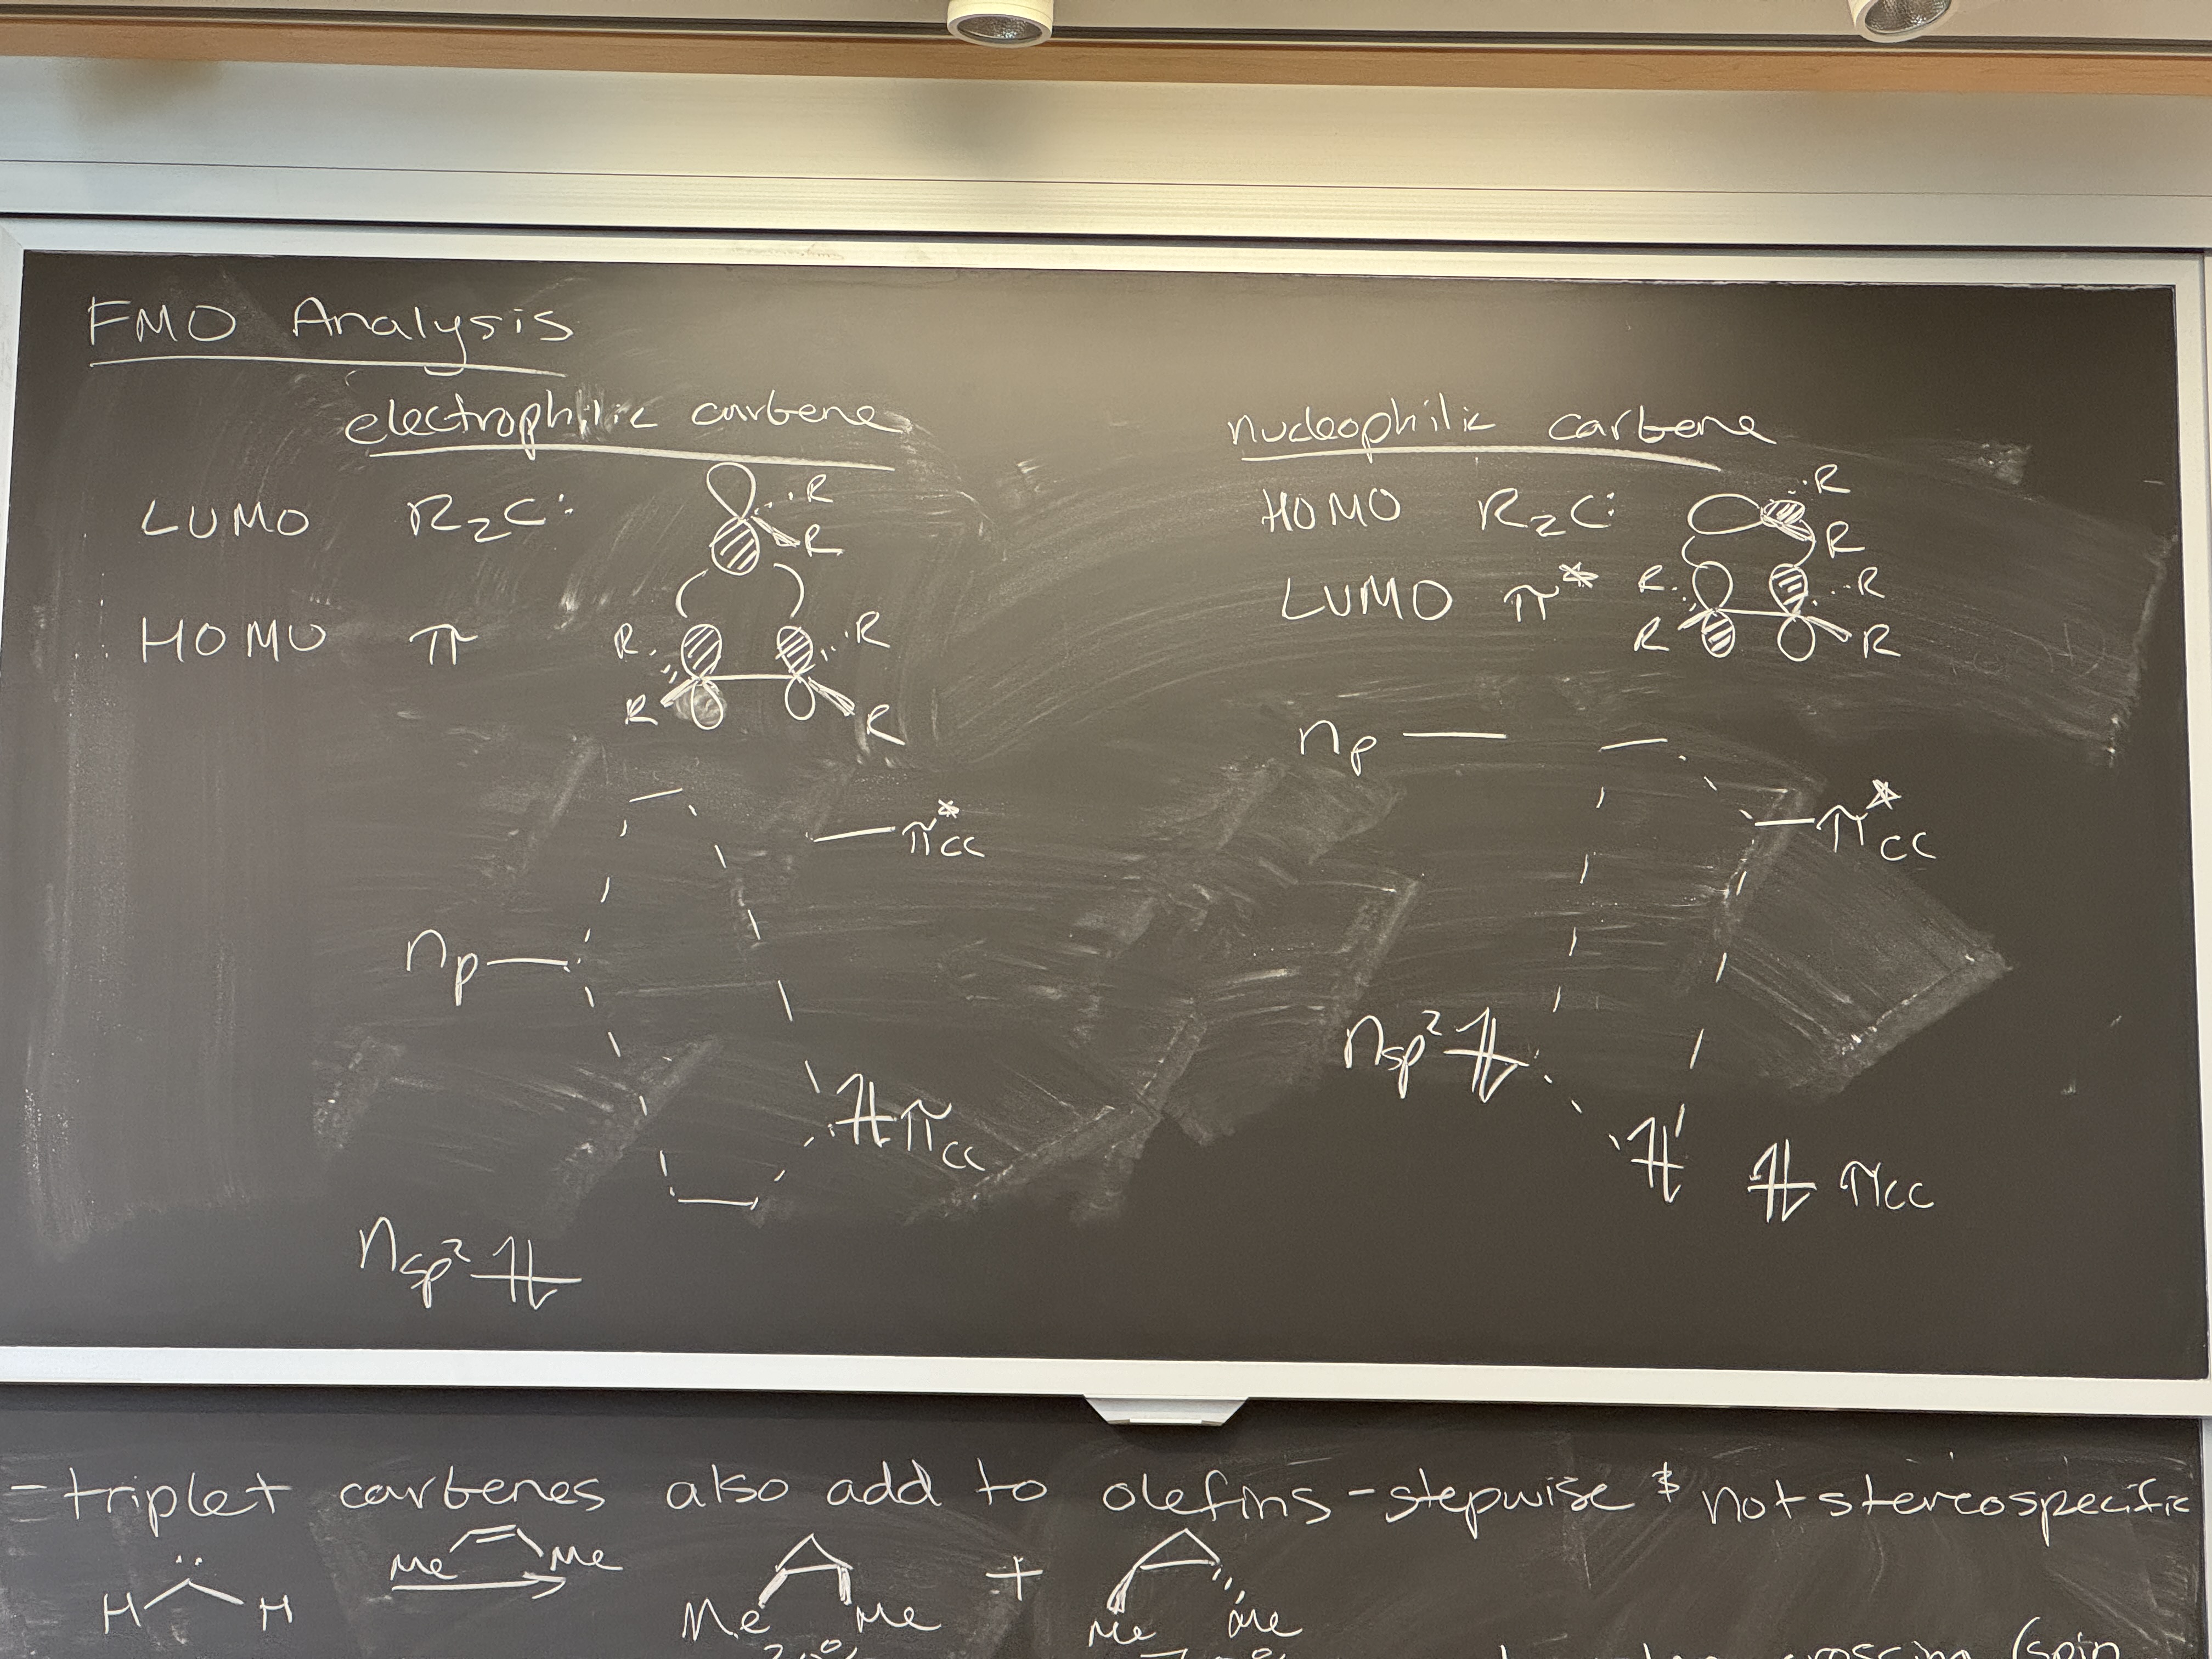 FMO Analysis
electrophilic carbene
LUMO R₂C:
R
R
HOMO π
R
R
R
R
π*cc
np
πcc
nsp²
nucleophilic carbene
HOMO R₂C:
R
R
LUMO π*
R
R
R
R
np
π*cc
nsp²
πcc
-triplet carbenes also add to olefins - stepwise & not stereospecific
H H
Me Me
Me Me + Me Me
crossing (spin